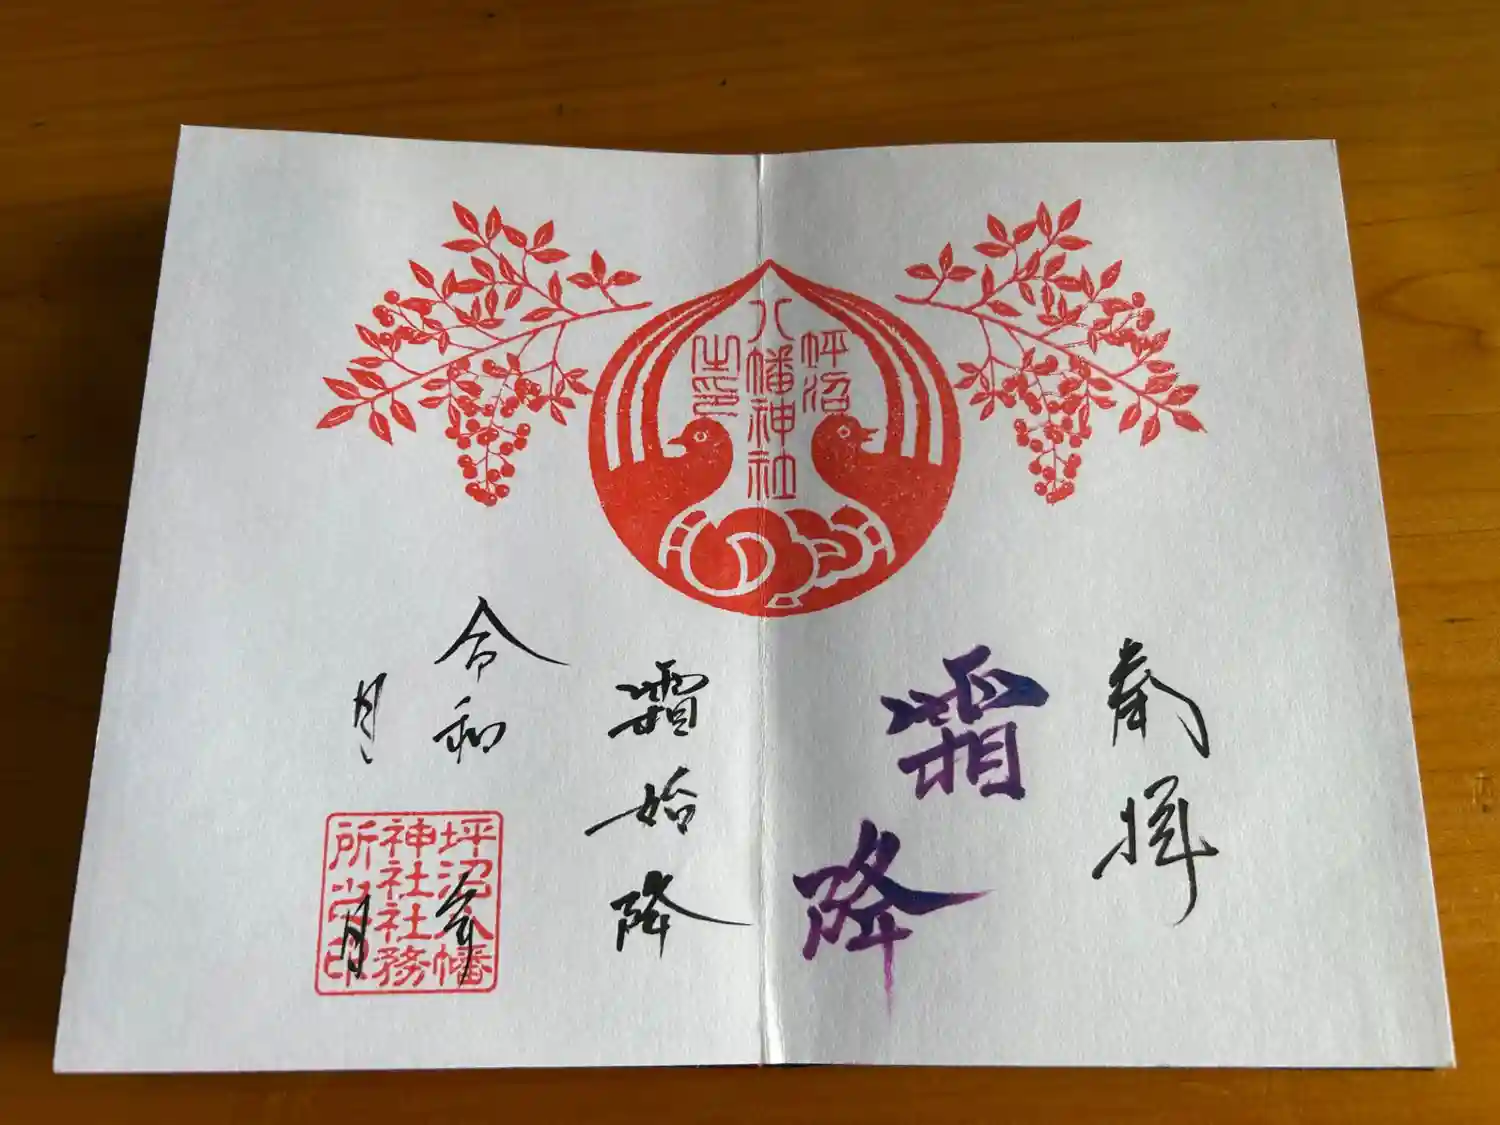 坪沼
八幡神社
之印
奉拝
霜降
霜始降
令和 年
月 日
坪沼八幡
神社社務
所之印